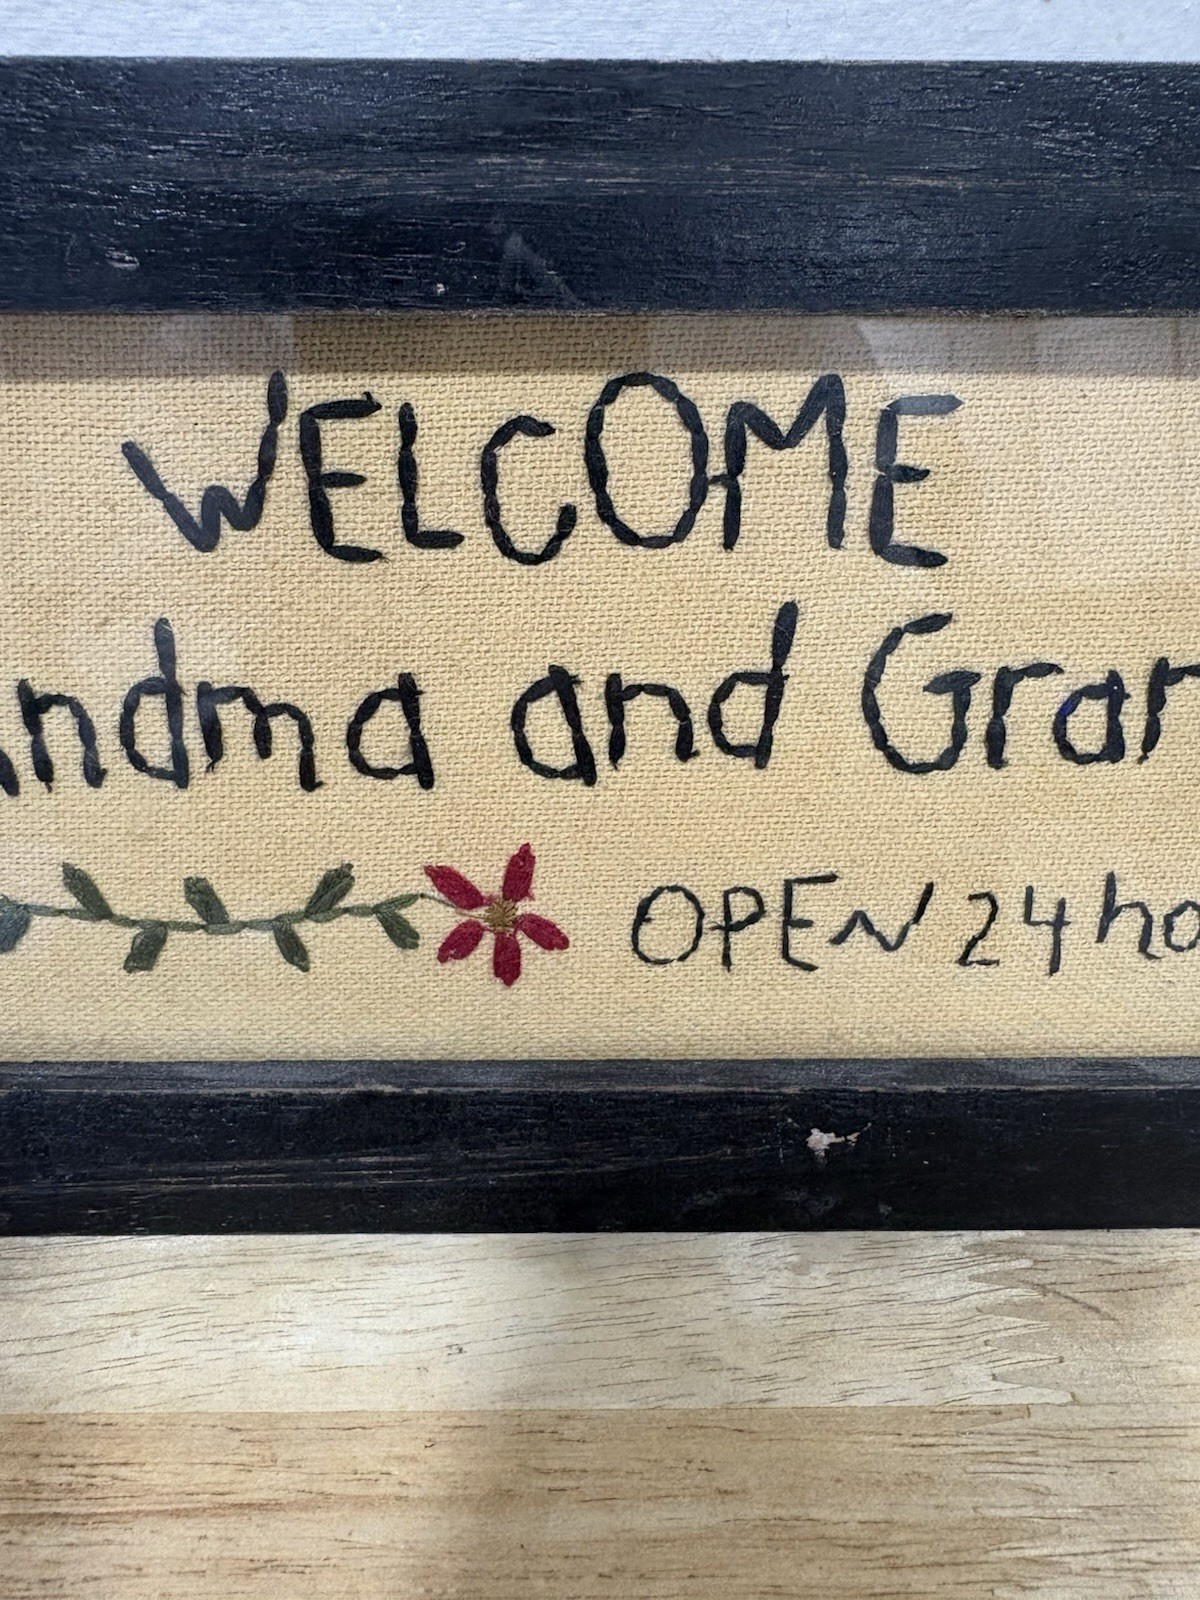 WELCOME
andma and Gran
OPEN 24 ho